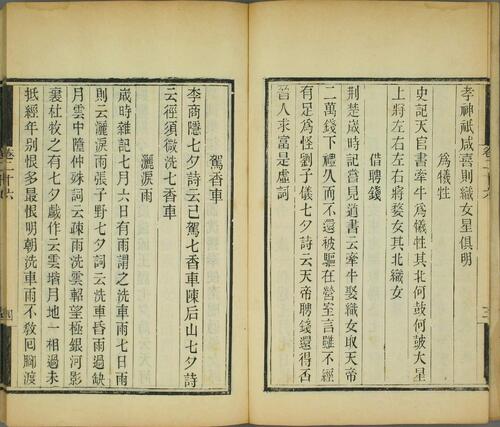 孝神祇咸喜則織女星俱明
爲犧牲
史記天官書牽牛爲犧牲其北河鼓河鼓大星
上將左右左右將婺女其北織女
借聘錢
荆楚歲時記嘗見道書云牽牛娶織女取天帝
二萬錢下禮久而不還被驅在營室言雖不經
有足爲怪劉子儀七夕詩云天帝聘錢還得否
晉人求富是虛詞
駕香車
李商隱七夕詩云已駕七香車陳后山七夕詩
云徑須微洗七香車
灑淚雨
歲時雜記七月六日有雨謂之洗車雨七日雨
則云灑淚雨張子野七夕詞云洗車昏雨過缺
月雲中墮仲殊詞云疎雨洗雲軿望極銀河影
裏杜牧之有七夕戲作云雲堦月地一相過未
抵經年別恨多最恨明朝洗車雨不敎回脚渡
卷二十六